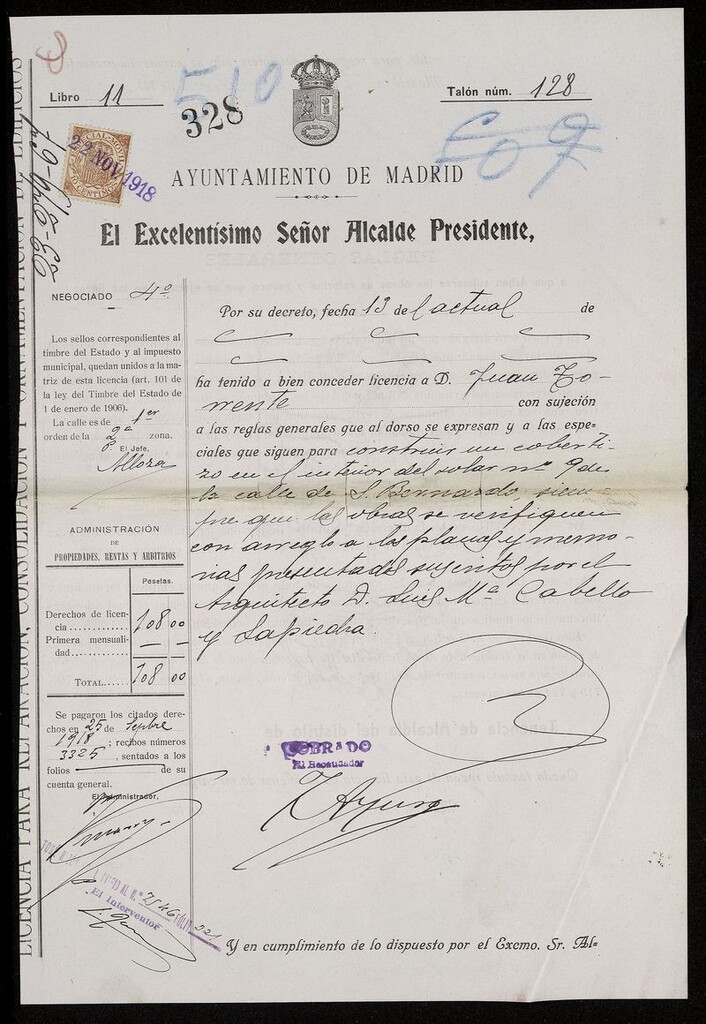 Libro 11
510
328
Talón núm. 128
607
ESPECIAL MOVIL
22 NOV 1918
AYUNTAMIENTO DE MADRID
El Excelentísimo Señor Alcalde Presidente,
NEGOCIADO 4º
Los sellos correspondientes al
timbre del Estado y al impuesto
municipal, quedan unidos a la ma-
triz de esta licencia (art. 101 de
la ley del Timbre del Estado de
1 de enero de 1906).
La calle es de 1er
orden de la 2ª zona.
El Jefe,
ADMINISTRACIÓN
DE
PROPIEDADES, RENTAS Y ARBITRIOS
Pesetas.
Derechos de licen-
cia........... 108 00
Primera mensuali-
dad.......... — —
TOTAL....... 108 00
Se pagaron los citados dere-
chos en 25 de Sepbre
1918; recibos números
3325, sentados a los
folios — de su
cuenta general.
El Administrador,
El Interventor
Por su decreto, fecha 13 del actual de
ha tenido a bien conceder licencia a D. Juan To-
rrente con sujeción
a las reglas generales que al dorso se expresan y a las espe-
ciales que siguen para construir un coberti-
zo en el interior del solar nº 9 de
la calle de S. Bernardo, siem-
pre que las obras se verifiquen
con arreglo a los planos y memo-
rias presentados suscritos por el
Arquitecto D. Luis Mª Cabello
y Lapiedra.
COBRADO
El Recaudador
Y en cumplimiento de lo dispuesto por el Excmo. Sr. Al-
LICENCIA PARA REPARACIÓN, CONSOLIDACIÓN Y ORNAMENTACIÓN DE EDIFICIOS